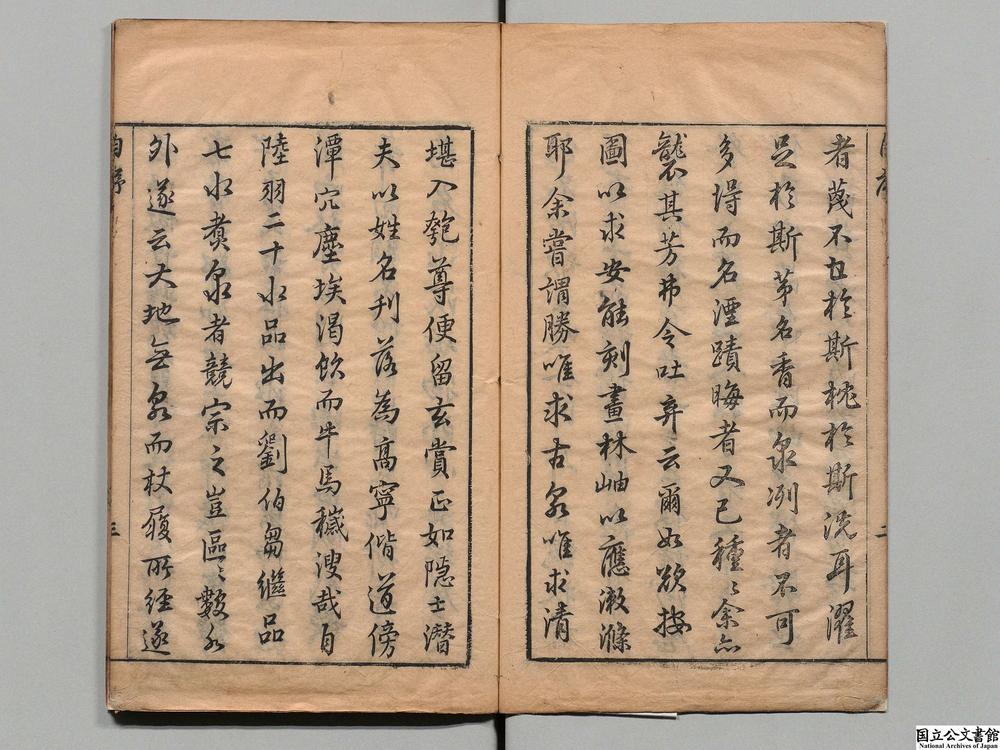 者蔑不有於斯枕於斯洗耳濯
足於斯第名香而泉冽者不可
多得而名湮蹟晦者又已種〻余亦
襲其芳弗令吐弃云爾如欲按
圖以求安能刻畫林岫以應漱滌
耶余嘗謂勝唯求古泉唯求清
堪入匏尊便留玄賞正如隱士潛
夫以姓名刊落為高寧偕道傍
潭穴塵埃渴飲而牛馬穢溲哉自
陸羽二十水品出而劉伯芻繼品
七水煮泉者競宗之豈區〻數水
外遂云大地無泉而杖履所經遂
自序
二
三
国立公文書館
National Archives of Japan